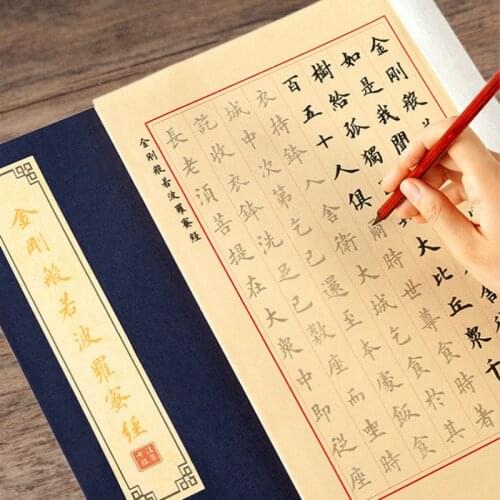 金剛般
如是我聞
樹給孤獨大比丘眾千
百五十人俱爾時世尊食時著
衣持鉢入舍衛大城乞食於其
城中次第乞已還至本處飯食
訖收衣鉢洗足已敷座而坐時
長老須菩提在大眾中即從
金剛般若波羅蜜經
金剛般若波羅蜜經